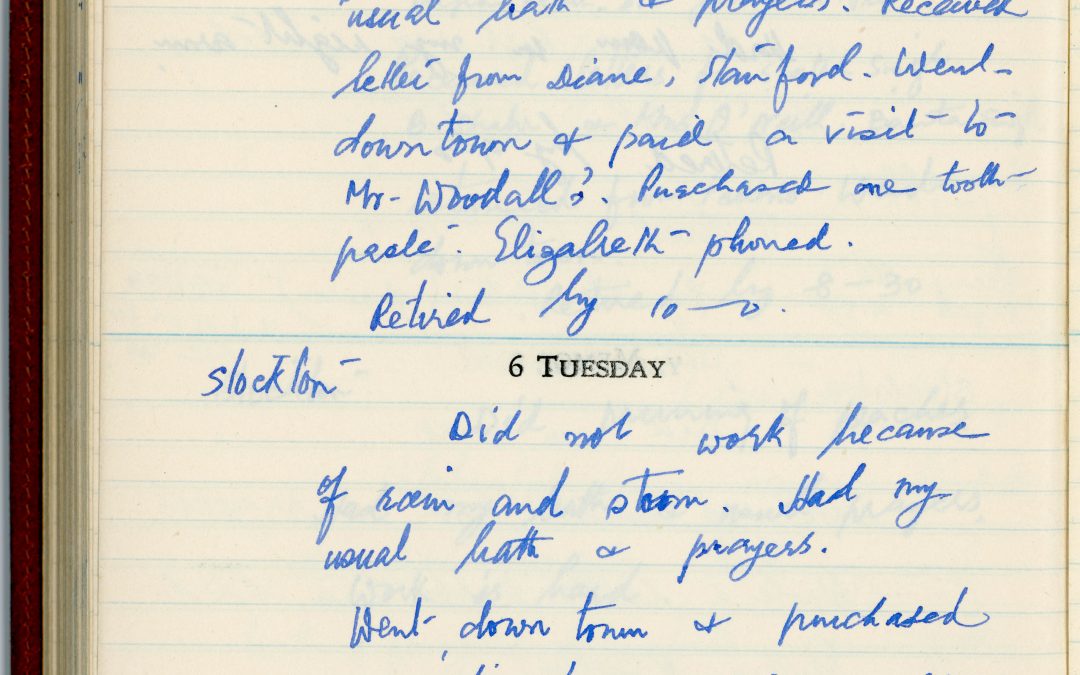 usual bath & prayers. Received
letter from Diane, Stanford. Went
down town & paid a visit to
Mr. Woodall's. Purchased one tooth
paste. Elizabeth phoned.
Retired by 10—0.
6 TUESDAY
Stockton
Did not work because
of rain and storm. Had my
usual bath & prayers.
Went down town & purchased